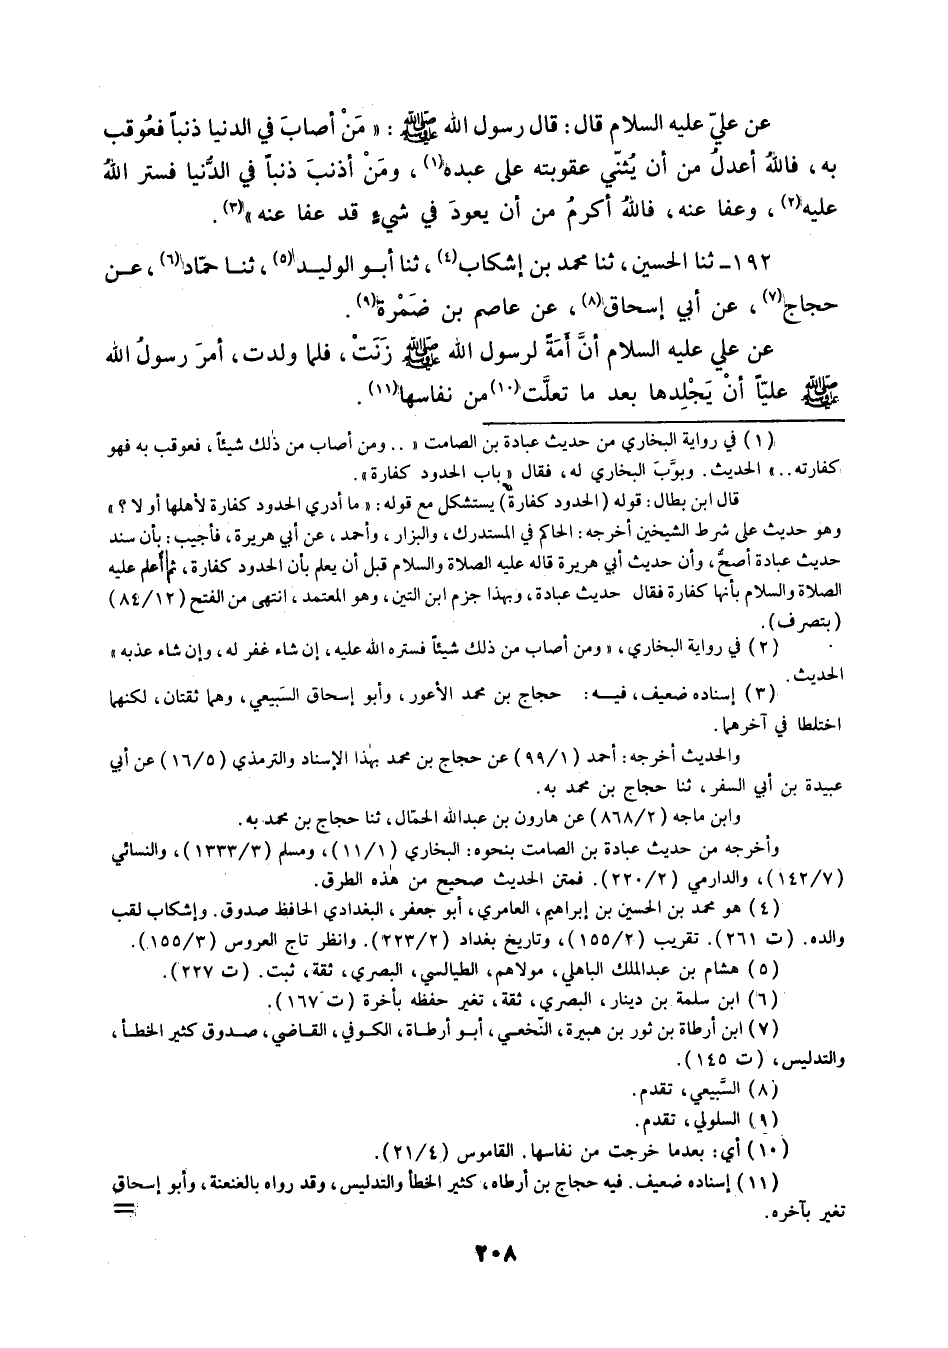 عن عليّ عليه السلام قال: قال رسول الله ﷺ : « مَنْ أصابَ في الدنيا ذنباً فعُوقب
به ، فاللهُ أعدلُ من أن يُثنّي عقوبته على عبده(١) ، ومَنْ أذنبَ ذنباً في الدُّنيا فستر اللهُ
عليه(٢) ، وعفا عنه ، فاللهُ أكرمُ من أن يعودَ في شيءٍ قد عفا عنه »(٣) .
١٩٢ـ ثنا الحسين ، ثنا محمد بن إشكاب(٤) ، ثنا أبو الوليد(٥) ، ثنا حمّاد(٦) ، عن
حجاج(٧) ، عن أبي إسحاق(٨) ، عن عاصم بن ضَمْرة(٩) .
عن علي عليه السلام أنَّ أَمَةً لرسول الله ﷺ زَنَتْ ، فلما ولدت ، أمرَ رسولُ الله
ﷺ عليّاً أنْ يَجْلِدها بعد ما تعلَّت(١٠) من نفاسها(١١) .
(١) في رواية البخاري من حديث عبادة بن الصامت « .. ومن أصاب من ذلك شيئاً ، فعوقب به فهو
كفارته .. » الحديث. وبوَّبَ البخاري له ، فقال « باب الحدود كفارة » .
قال ابن بطال: قوله (الحدود كفارة) يستشكل مع قوله: « ما أدري الحدود كفارة لأهلها أو لا ؟ »
وهو حديث على شرط الشيخين أخرجه: الحاكم في المستدرك ، والبزار ، وأحمد ، عن أبي هريرة ، فأجيب: بأن سند
حديث عبادة أصحُّ ، وأن حديث أبي هريرة قاله عليه الصلاة والسلام قبل أن يعلم بأن الحدود كفارة ، ثم أعلم عليه
الصلاة والسلام بأنها كفارة فقال حديث عبادة ، وبهذا جزم ابن التين ، وهو المعتمد ، انتهى من الفتح (٨٤/١٢)
(بتصرف).
(٢) في رواية البخاري ، « ومن أصاب من ذلك شيئاً فستره الله عليه ، إن شاء غفر له ، وإن شاء عذبه »
الحديث.
(٣) إسناده ضعيف ، فيه: حجاج بن محمد الأعور ، وأبو إسحاق السَبيعي ، وهما ثقتان ، لكنهما
اختلطا في آخرهما.
والحديث أخرجه: أحمد (٩٩/١) عن حجاج بن محمد بهذا الإسناد والترمذي (١٦/٥) عن أبي
عبيدة بن أبي السفر ، ثنا حجاج بن محمد به.
وابن ماجه (٨٦٨/٢) عن هارون بن عبدالله الحمّال ، ثنا حجاج بن محمد به.
وأخرجه من حديث عبادة بن الصامت بنحوه: البخاري (١١/١) ، ومسلم (١٣٣٣/٣) ، والنسائي
(١٤٢/٧) ، والدارمي (٢٢٠/٢). فمتن الحديث صحيح من هذه الطرق.
(٤) هو محمد بن الحسين بن إبراهيم ، العامري ، أبو جعفر ، البغدادي الحافظ صدوق. وإشكاب لقب
والده. (ت ٢٦١). تقريب (١٥٥/٢) ، وتاريخ بغداد (٢٢٣/٢). وانظر تاج العروس (١٥٥/٣).
(٥) هشام بن عبدالملك الباهلي ، مولاهم ، الطيالسي ، البصري ، ثقة ، ثبت. (ت ٢٢٧).
(٦) ابن سلمة بن دينار ، البصري ، ثقة ، تغير حفظه بأخرة (ت ١٦٧).
(٧) ابن أرطاة بن ثور بن هبيرة ، النَّخعي ، أبو أرطاة ، الكوفي ، القاضي ، صدوق كثير الخطأ ،
والتدليس ، (ت ١٤٥).
(٨) السَّبيعي ، تقدم.
(٩) السلولي ، تقدم.
(١٠) أي: بعدما خرجت من نفاسها. القاموس (٢١/٤).
(١١) إسناده ضعيف. فيه حجاج بن أرطاه ، كثير الخطأ والتدليس ، وقد رواه بالعنعنة ، وأبو إسحاق
تغير بآخره. =
٢٠٨